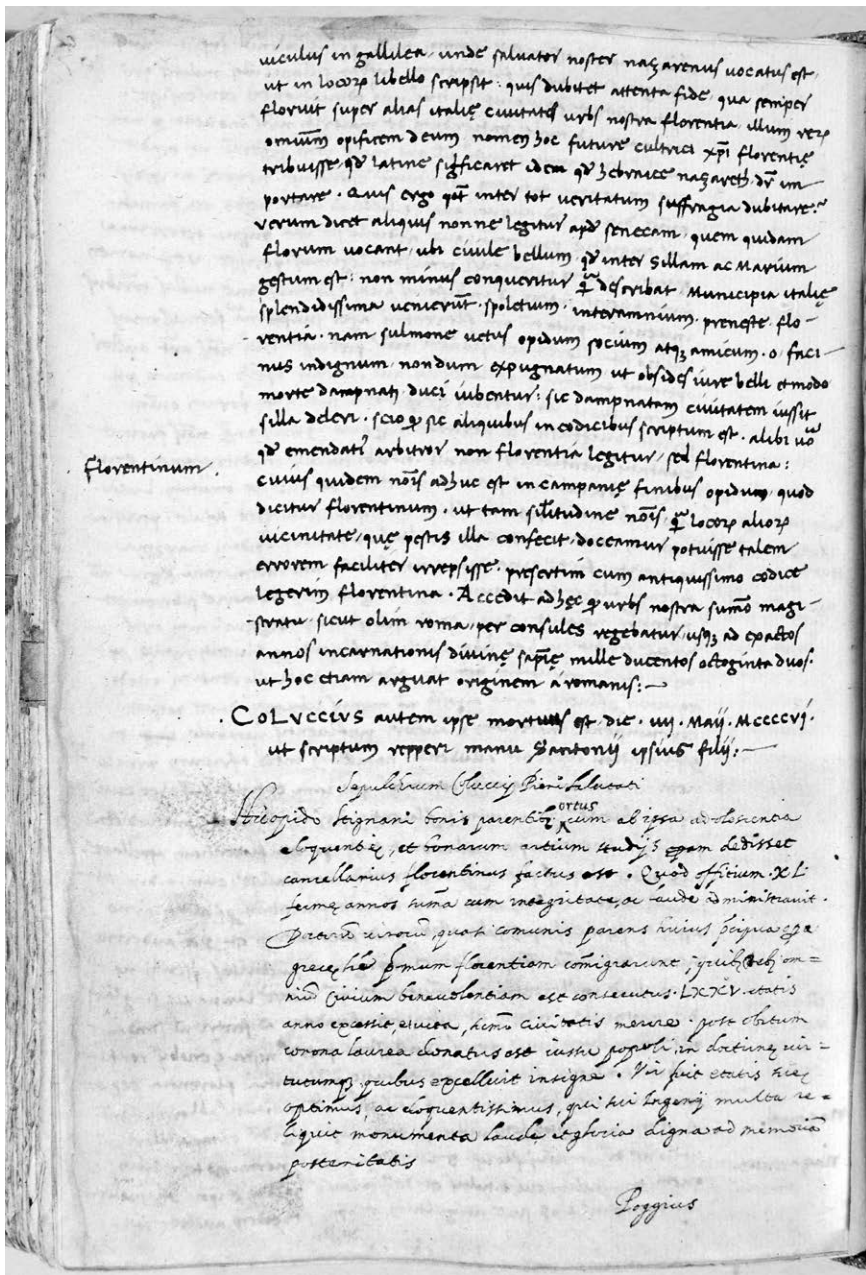 viculus in gallilea. unde salvator noster naȝarenus vocatus est,
ut in locoꝝ libello scripsit: quis dubitet attenta fide, qua semper
floruit super alias italię civitates urbs nostra florentia, illum reꝝ
omnium opificem deum nomen hoc future cultrici xp̄i florentię
tribuisse, qđ latine significaret idem qđ hebraice naȝareth dr̄ im—
portare. Quis ergo pōt inter tot veritatum suffragia dubitare?
verum dicet aliquis nonne legitur apđ senecam, quem quidam
florum vocant, ubi civile bellum, qđ inter Sillam ac Marium
gestum est: non minus conqueritur q̄ describat. Municipia italię
splendidissima venierūt. spoletium. interamnium. preneste. flo—
rentia. nam sulmone vetus opidum socium atqꝫ amicum. o faci—
nus indignum nondum expugnatum ut obsides iure belli et modo
morte dampnati duci iubentur: sic dampnatam civitatem iussit
silla deleri. scio ꝙ sic aliquibus in codicibus scriptum est. alibi vō
qđ emendati arbitror non florentia legitur, sed florentina:
florentinum.
cuius quidem nōis adhuc est in campanię finibus opidum, quod
dicitur florentinum. ut tam silitudine nōis, q̄ locoꝝ alioꝝ
vicinitate, quę pestis illa confecit, doceamur potuisse talem
errorem faciliter irrepsisse. presertim cum antiquissimo codice
legerim florentina. Accedit ad hęc ꝙ urbs nostra sum̄o magi—
stratu, sicut olim roma, per consules regebatur, usqꝫ ad exactos
annos incarnationis divinę sapię mille ducentos octoginta duos.
ut hoc etiam arguat originem a romanis:—
. COLVCCIVS autem ipse mortuus est die. iiij. Maij. MCCCCVI.
ut scriptum repperi manu Santonij ipsius filij:—
Sepulchrum Coluccij Pieri Salutati
Hic opido Stignani bonis parentibꝫ ortus cum ab ipsa adolescentia
eloquentię, et bonarum artium studijs operam dedisset
cancellarius florentinus factus est. Quod officium. XL
ferme annos suma cum integritate, ac laude administravit.
quasi comunis parens huius
florentiam
nium Civium benevolentiam est consecutus. LXXV. etatis
anno excessit, e vita, civitatis merore. post obitum
corona laurea donatus est iussu populi, in doctrinę vir=
tutumqꝫ quibus excelluit insigne. Vir fuit etatis suę
optimus, ac eloquentissimus, qui sui Ingenij multa re=
liquit monumenta laude et gloria digna ad memoriā
posteritatis
Poggius